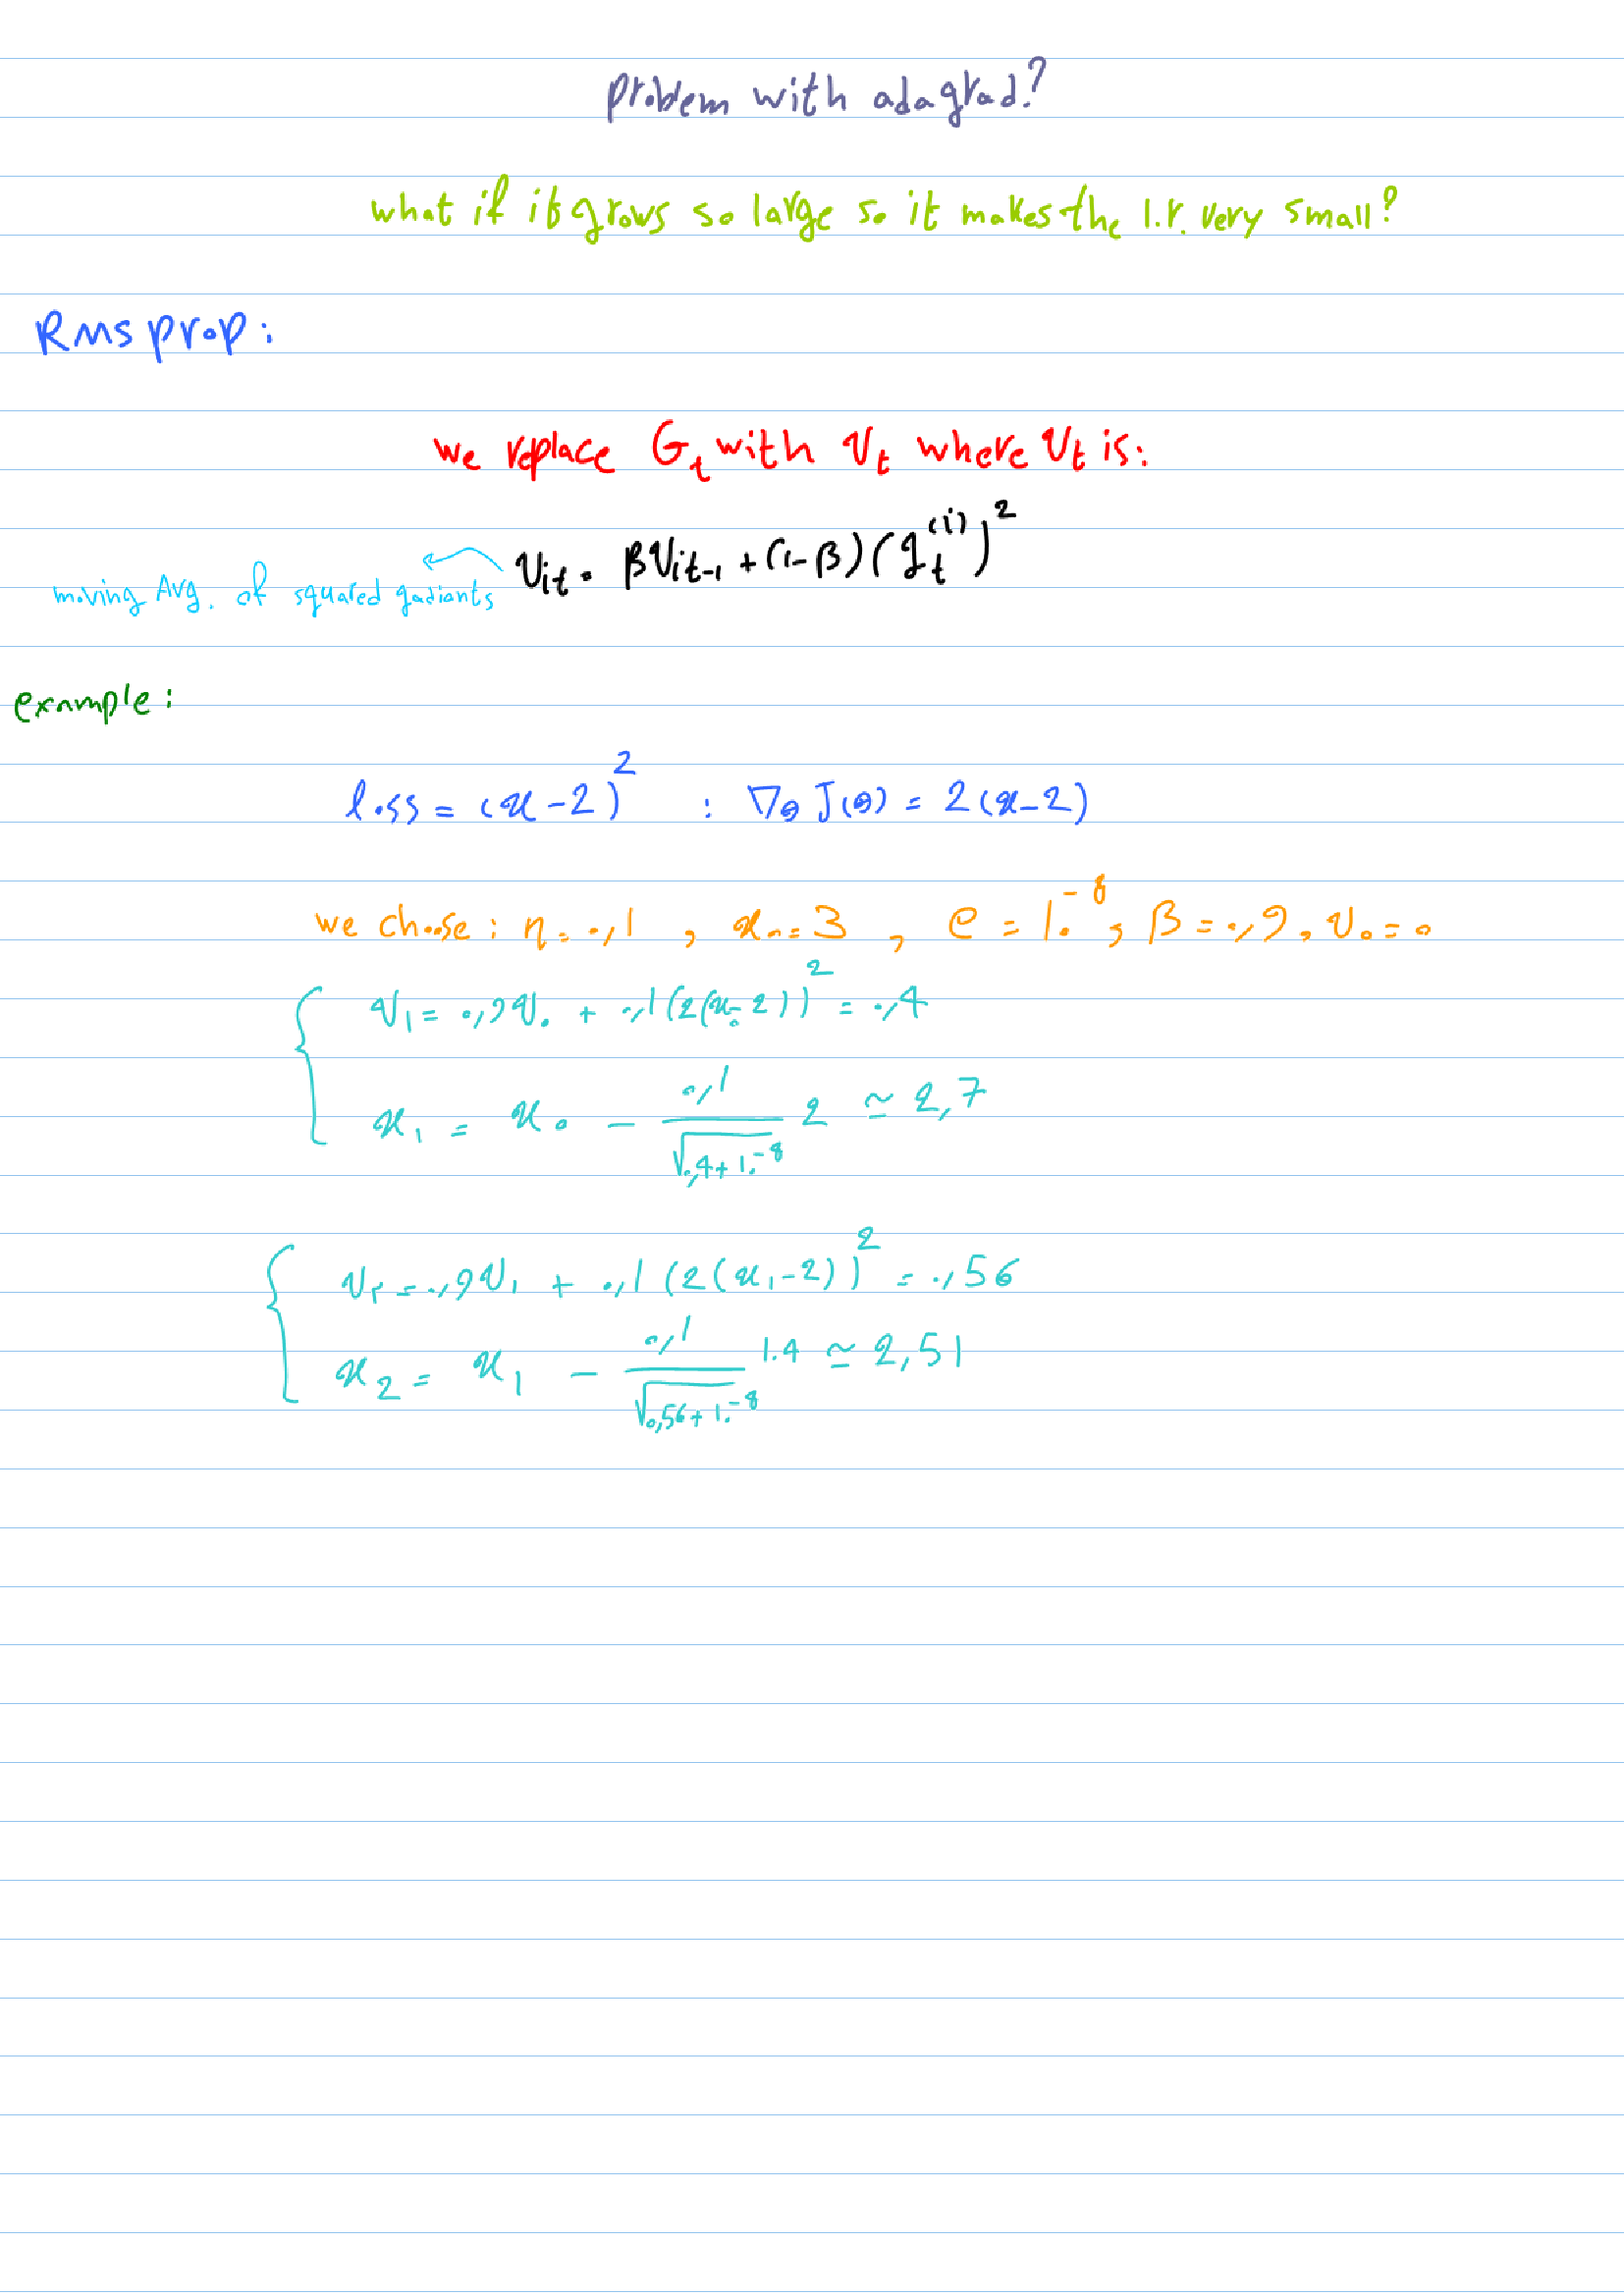 problem with adagrad?
what if it grows so large so it makes the l.r. very small?
RMsprop:
we replace G_t with v_t where v_t is:
v_it = βv_it-1 + (1-β)(g_t^(i))^2
moving Avg. of squared gadiants
example:
loss = (x-2)^2 : ∇_θ J(θ) = 2(x-2)
we choose: η = 0,1 , x_0 = 3 , e = 10^-8 , β = 0,9 , v_0 = 0
v_1 = 0,9v_0 + 0,1(2(x_0-2))^2 = 0,4
x_1 = x_0 - 0,1/√(0,4+10^-8) 2 ≃ 2,7
v_2 = 0,9v_1 + 0,1(2(x_1-2))^2 = 0,56
x_2 = x_1 - 0,1/√(0,56+10^-8) 1.4 ≃ 2,51